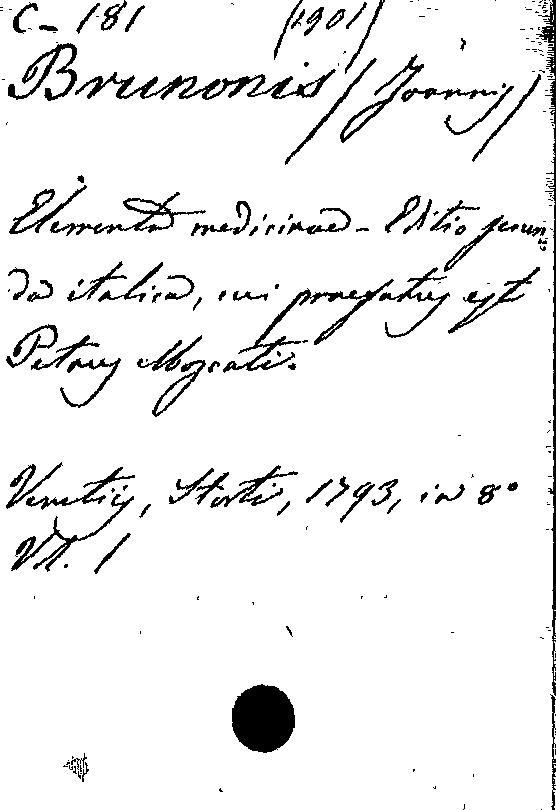 C- 181 (1901)
Brunonis (Joannis)
Elementa medicinae - Editio secun
da italica, cui praefatus est
Petrus Moscati.
Venetiis, Storti, 1793, in 8°
Vol. 1